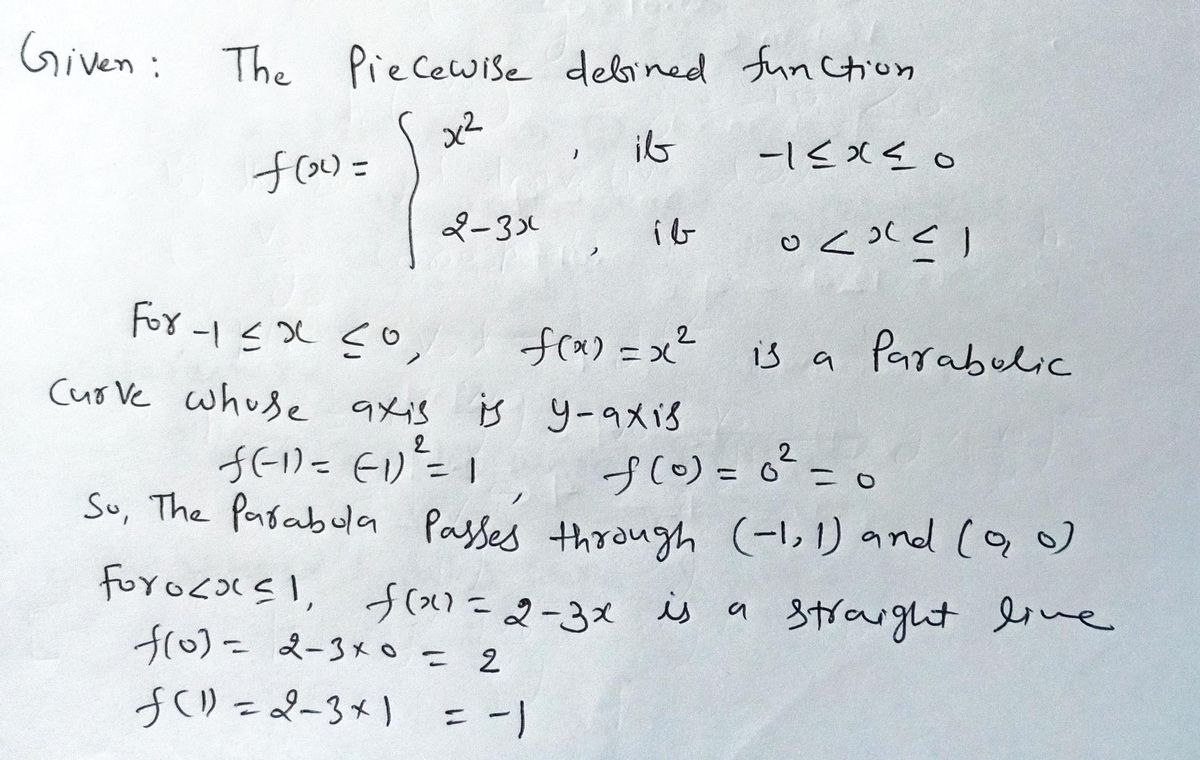 Given : The Piecewise defined function
f(x) = { x², if -1 ≤ x ≤ 0
2-3x, if 0 < x ≤ 1
For -1 ≤ x ≤ 0, f(x) = x² is a Parabolic
Curve whose axis is y-axis
f(-1) = (-1)² = 1, f(0) = 0² = 0
So, The Parabola Passes through (-1, 1) and (0, 0)
For 0<x≤1, f(x) = 2-3x is a straight line
f(0) = 2-3×0 = 2
f(1) = 2-3×1 = -1